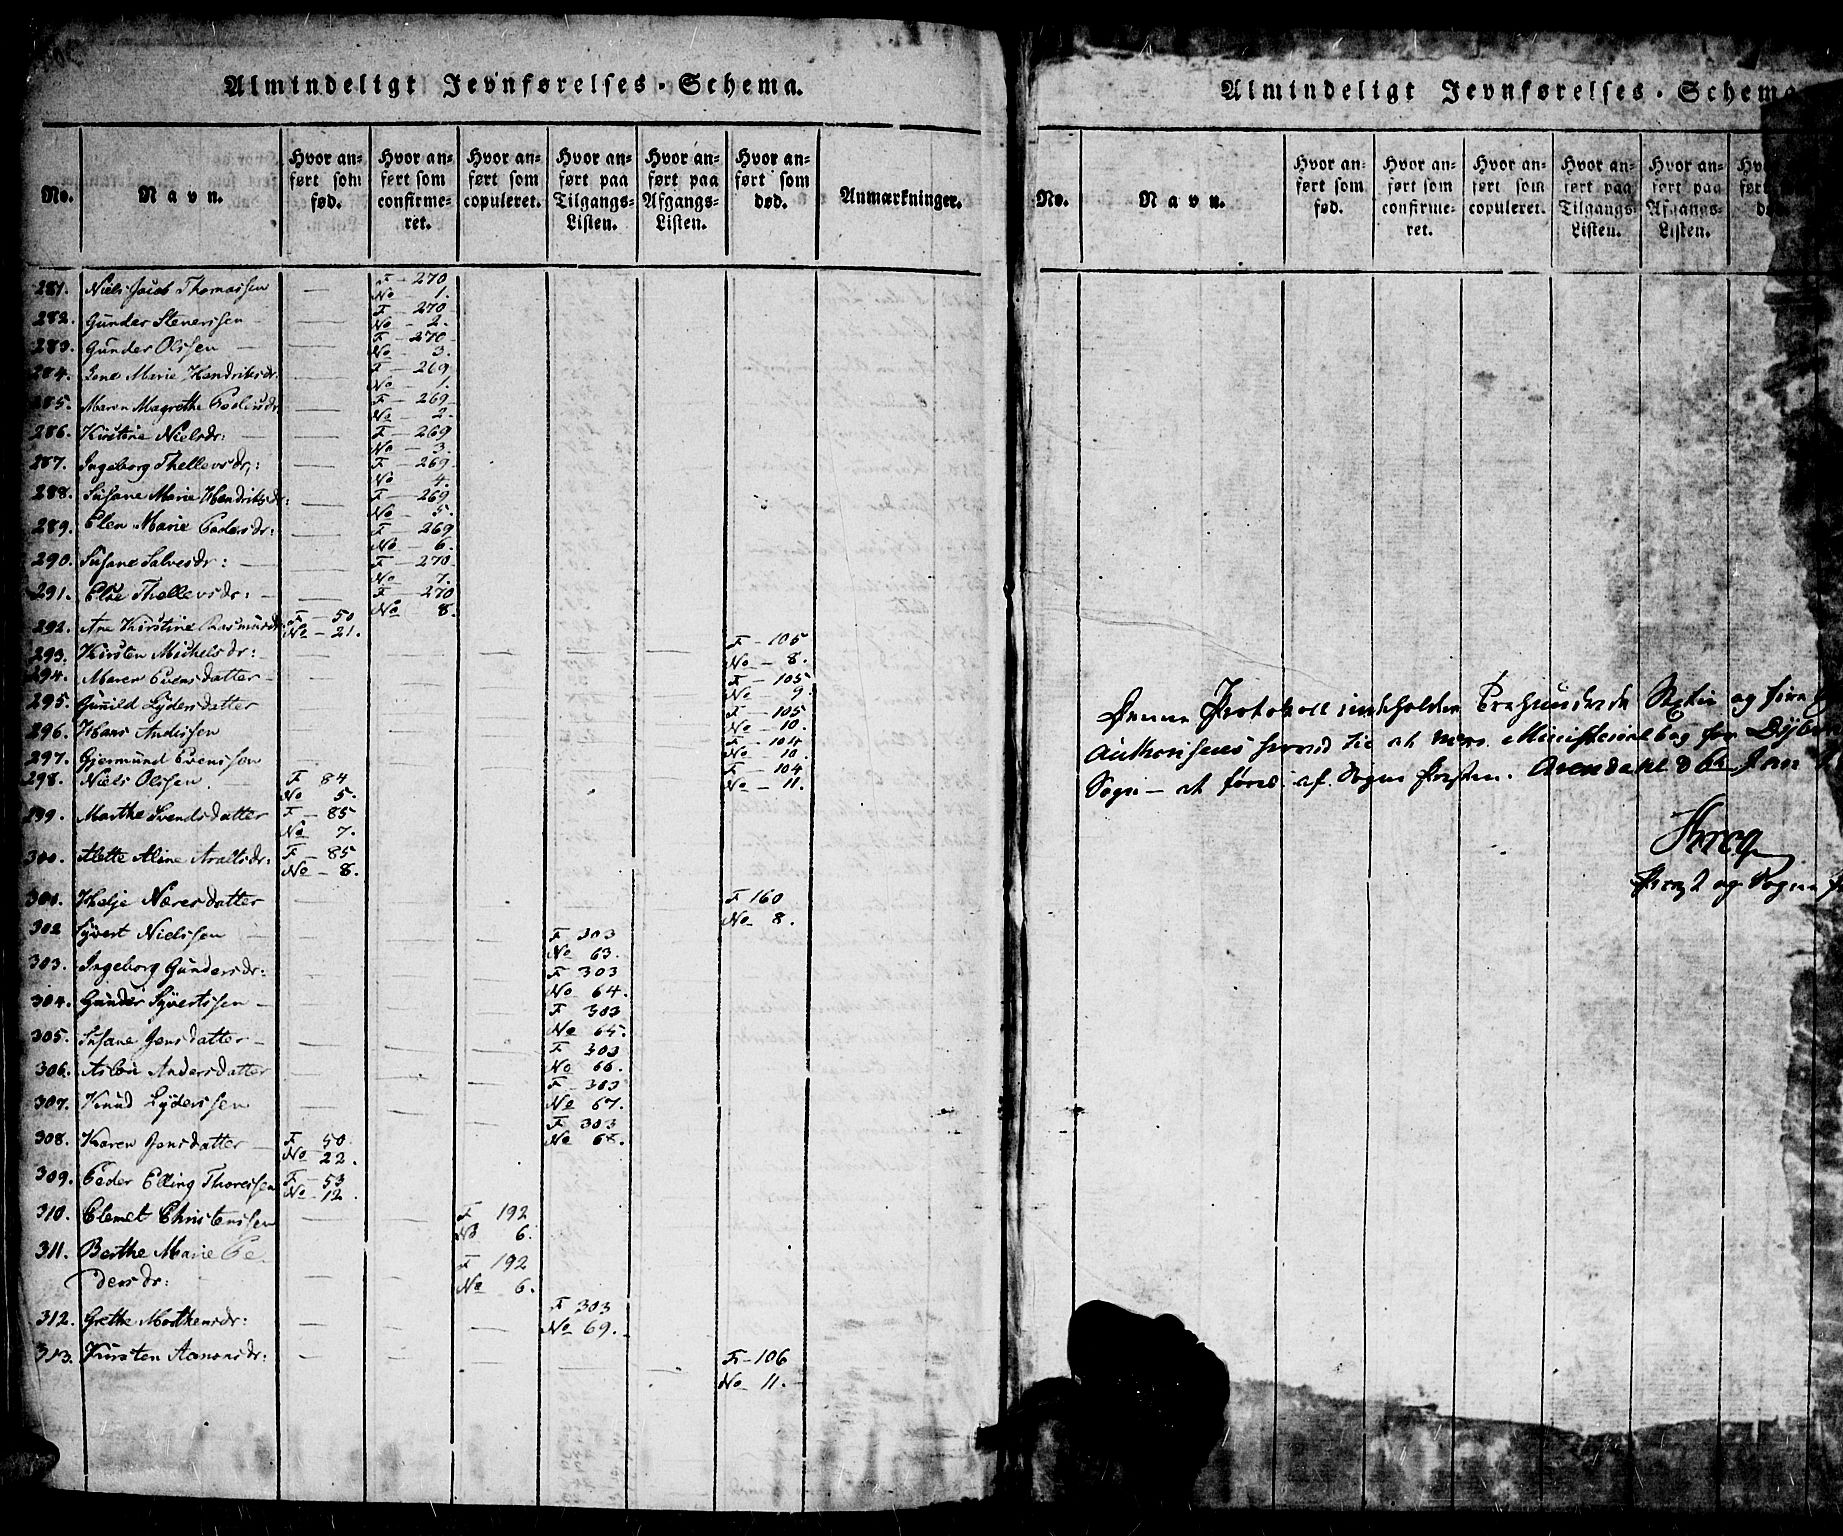 Almindeligt Jevnførelses-Schema.
No. Navn. Hvor anført som fød. Hvor anført som confirmeret. Hvor anført som copuleret. Hvor anført paa Tilgangs-Listen. Hvor anført paa Afgangs-Listen. Hvor anført som død. Anmærkninger.
281. Niels Jacob Thomassen — F — 270 No — 1.
282. Gunder Stenerssen — F — 270 No — 2.
283. Gunder Olssen — F — 270 No — 3.
284. Marie Hendriksdr. — F — 269 No — 1.
285. Maren Magrethe — F — 269 No — 2.
286. Kirstine Nielsdr: — F — 269 No — 3.
287. Ingeborg Thellevsdr: — F — 269 No — 4.
288. Susane Marie Hendriksdr: — F — 269 No — 5.
289. Elen Marie Pedersdr: — F — 269 No — 6.
290. Susane Salvesdr: — F — 270 No — 7.
291. Else Thellevsdr: — F — 270 No 8.
292. Ane Kirstine Rasmusdr: F — 50 No — 21.
293. Kirsten Michelsdr: — F — 105 No — 8.
294. Maren Evensdatter — F — 105 No — 9.
295. Gunild Lydersdatter F — 105 No — 10.
296. Hans Anderssen F — 104 No — 10.
297. Gjermund Evenssen F — 104 No — 11.
298. Niels Olssen F 84 No 5.
299. Marthe Svendsdatter F — 85 No 7.
300. Mette Aline Araltsdr: F — 85 No — 8.
301. Helje Næresdatter — F 160 No 8.
302 Syvert Nielssen — F 303 No 63.
303. Ingeborg Gundersdr: F 303 No 64.
304. Gunder Syvertssen — F 303 No 65.
305. Susane Jensdatter — F 303 No 66.
306. Andersdatter F — 303 No 67.
307. Knud Lyderssen F — 303 No 68.
308. Karen Jensdatter — F — 50. No — 22.
309. Peder Elling Thoressen F — 53 No — 12
310. Clemet Christenssen F 192 No 6.
311. Berthe Marie Pe-
dersdr: F 192 No 6.
312. Grethe Mathensdr: F 303 No 69.
313. Kirsten Aanonsdr: F — 106 No 11.
Almindeligt Jevnførelses-Schema
No. Navn. Hvor anført som fød. Hvor anført som confirmeret. Hvor anført som copuleret. Hvor anført paa Tilgangs-Listen. Hvor anført paa Afgangs-Listen.
Denne Protokoll indeholder og fire
Authoriseres herved til at være Ministerialbog for
Sogn — at føres af Sogne Præsten. Arendahl d 6te
Provst og Sogne